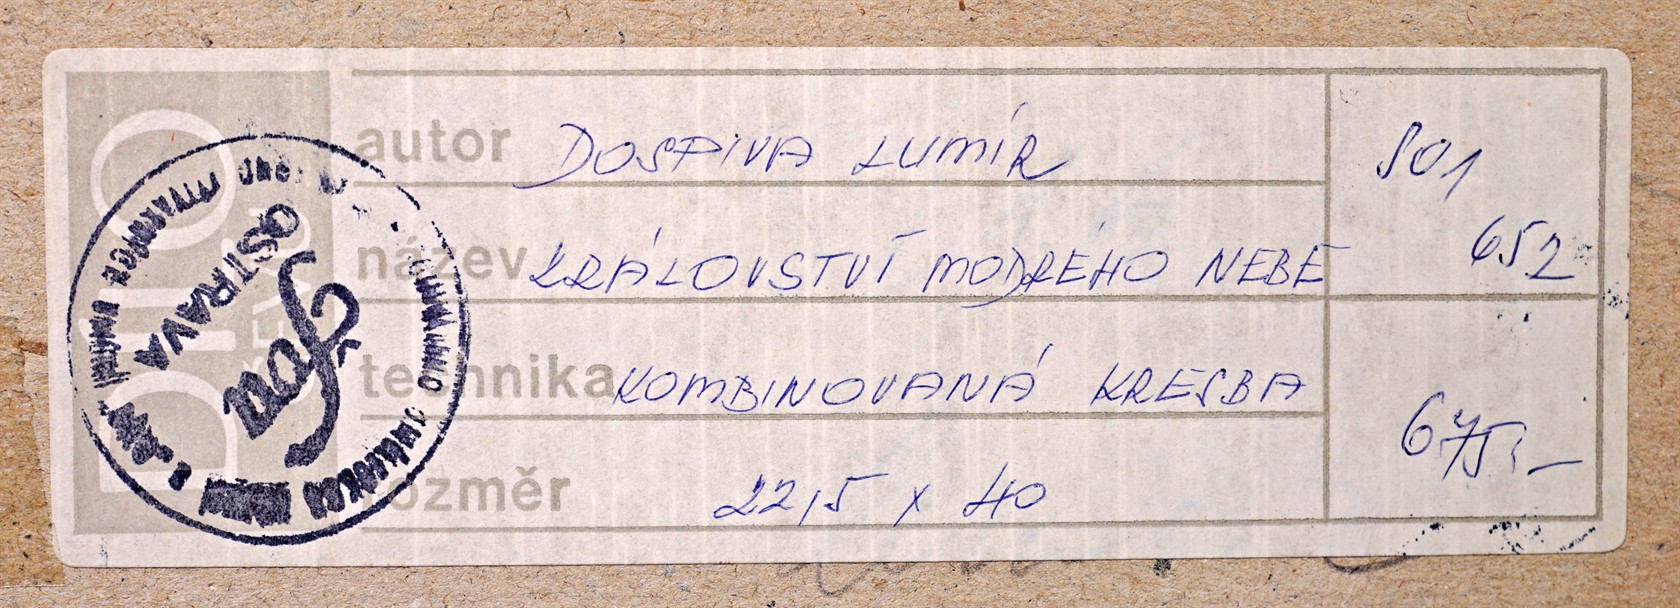 DÍLO
autor DOSPIVA LUMÍR
název KRÁLOVSTVÍ MODRÉHO NEBE
technika KOMBINOVANÁ KRESBA
rozměr 22,5 x 40
801
652
675,-
OSTRAVA